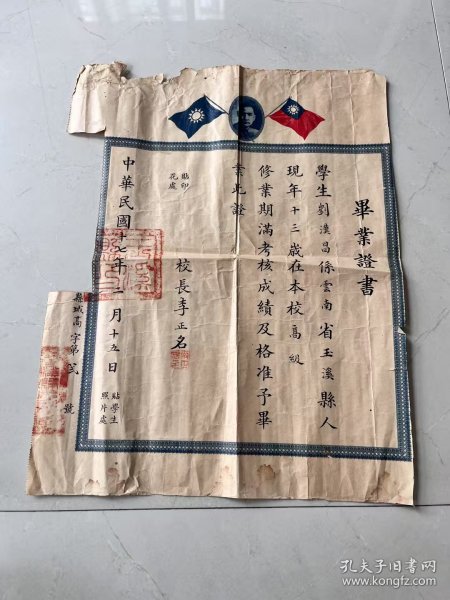 畢業證書
學生劉漢昌係雲南省玉溪縣人
現年十三歲在本校高級
修業期滿考核成績及格准予畢
業此證
貼印
花處
校長李正名
中華民國十七年一月十五日
貼學生
照片處
縣城高字第貳號
孔夫子旧书网
www.kongfz.com